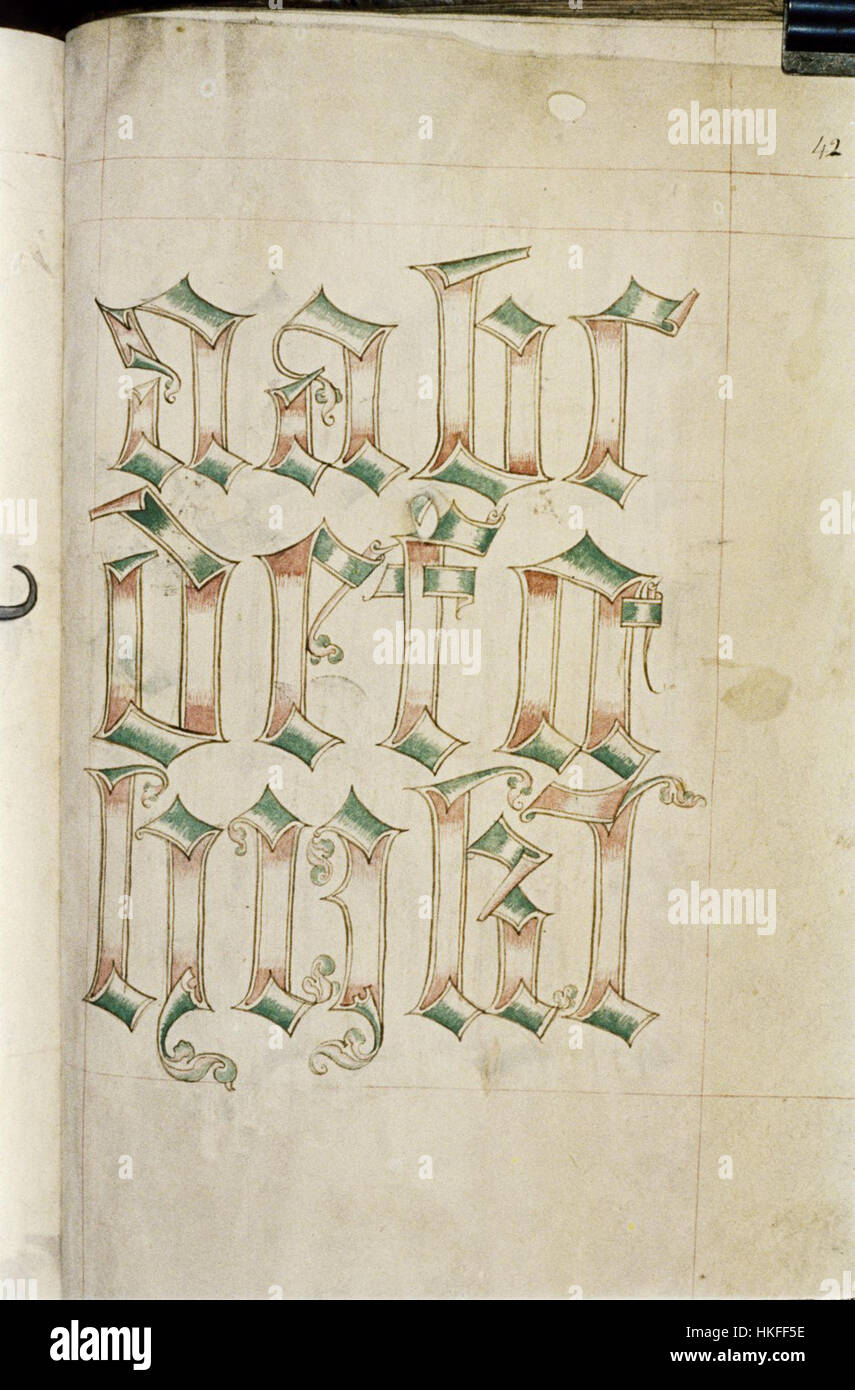 42
a a b c
d e f g
h i j k l
alamy
Image ID: HKFF5E
www.alamy.com